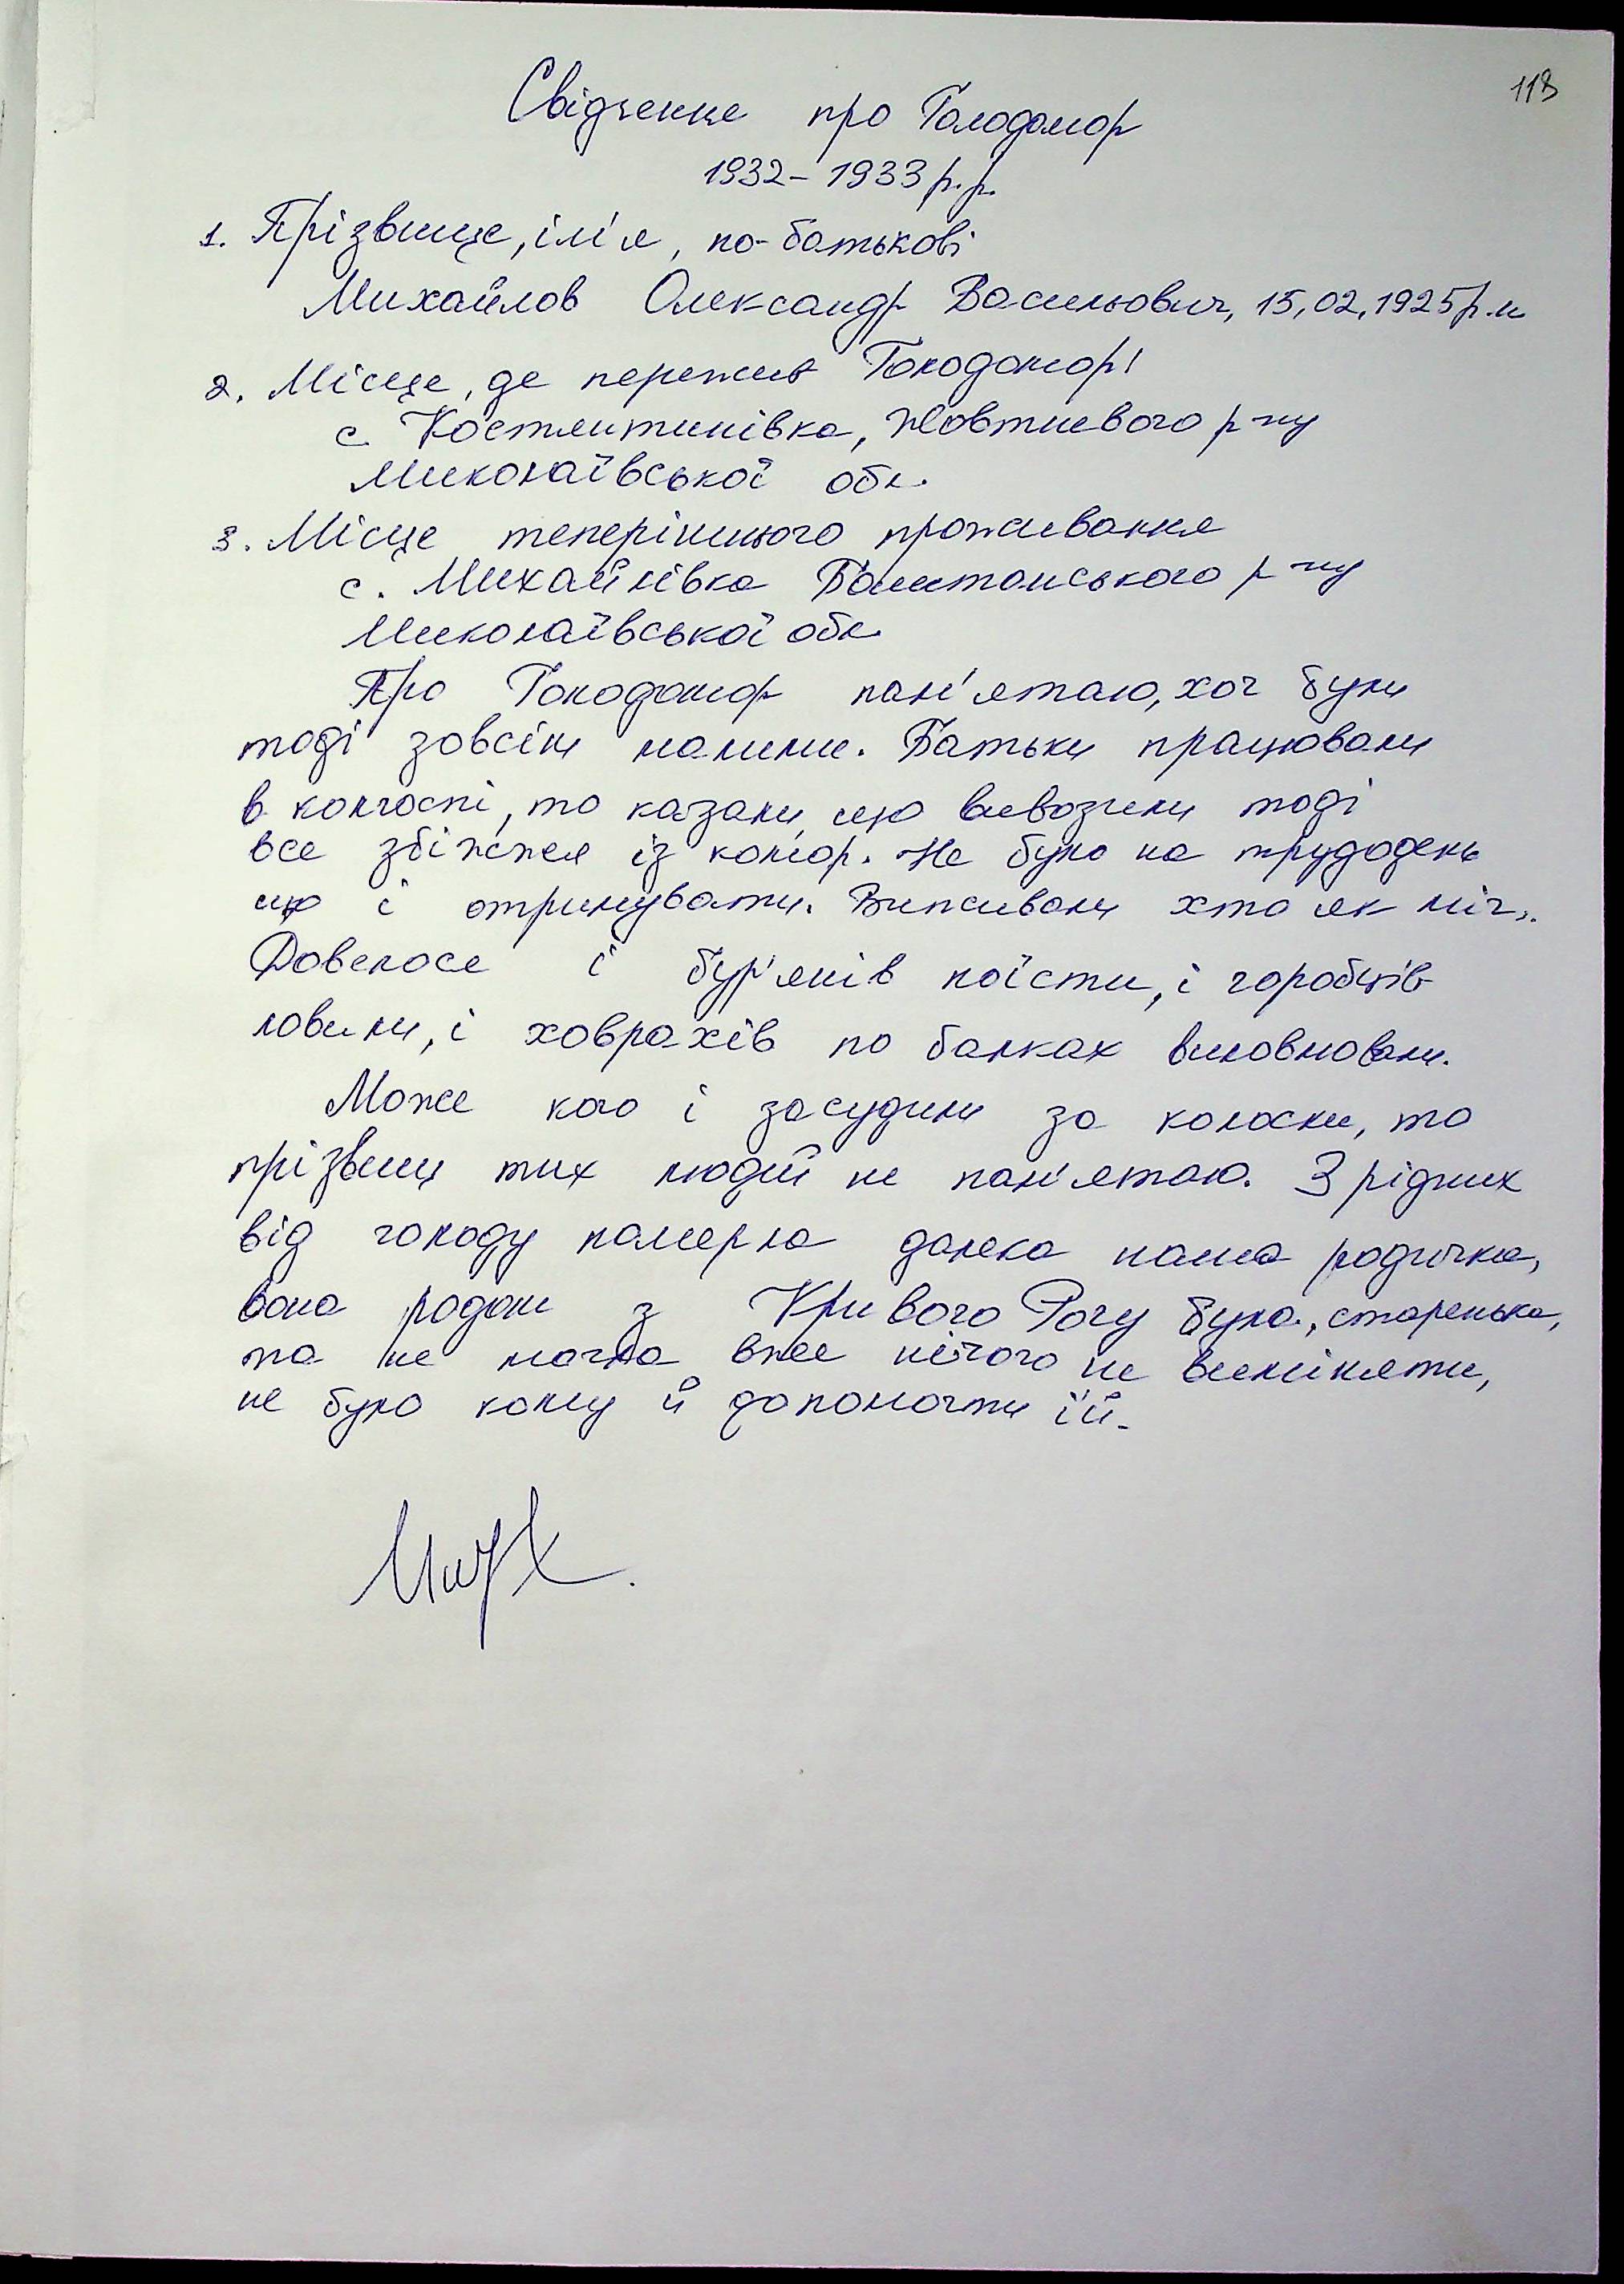 118
Свідчення про Голодомор
1932-1933 р.р.
1. Прізвище, ім'я, по-батькові
Михайлов Олександр Васильович, 15,02,1925 р.н
2. Місце, де пережив Голодомор:
с. Костянтинівка, Жовтневого р-ну
Миколаївської обл.
3. Місце теперішнього проживання
с. Михайлівка Баштанського р-ну
Миколаївської обл.
Про Голодомор пам'ятаю, хоч були
тоді зовсім малими. Батьки працювали
в колгоспі, то казали що вивозили тоді
все збіжжя із комор. Не було на трудодень
що і отримувати. Виживали хто як міг.
Довелося і бур'янів поїсти, і горобців
ловили, і ховрахів по балках виловлювали.
Може кого і засудили за колоски, то
прізвищ тих людей не пам'ятаю. З рідних
від голоду померла далека наша родичка,
вона родом з Кривого Рогу була, старенька,
та не могла вже нічого не виміняти,
не було кому й допомогти їй.